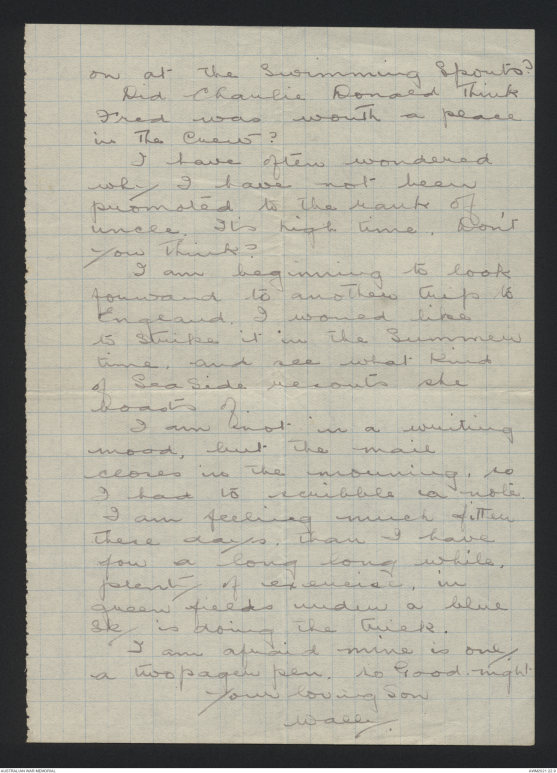 on at the Swimming Sports?
Did Charlie Donald think
Fred was worth a place
in the Crew?
I have often wondered
why I have not been
promoted to the rank of
uncle. It's high time. Don't
you think?
I am beginning to look
forward to another trip to
England. I would like
to strike it in the Summer
time, and see what kind
of Sea Side resorts she
boasts of.
I am not in a writing
mood, but the mail
closes in the morning, so
I had to scribble a note.
I am feeling much fitter
these days, than I have
for a long long while,
plenty of exercise, in
green fields under a blue
sky is doing the trick.
I am afraid mine is only
a two pager pen, so Good-night
Your loving Son
Wally.
AUSTRALIAN WAR MEMORIAL